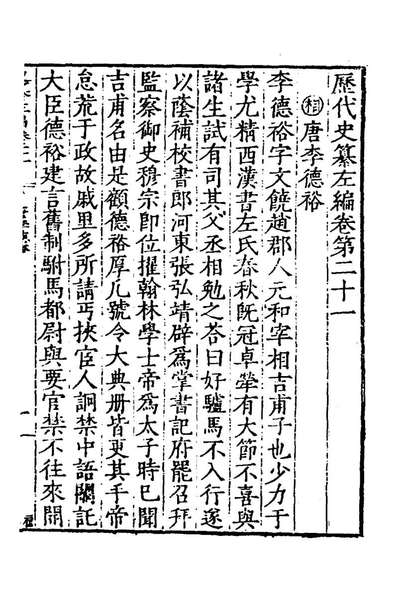 歷代史纂左編卷第二十一
相唐李德裕
李德裕字文饒趙郡人元和宰相吉甫子也少力于
學尤精西漢書左氏春秋既冠卓犖有大節不喜與
諸生試有司其父丞相勉之答曰好驢馬不入行遂
以蔭補校書郎河東張弘靖辟爲掌書記府罷召拜
監察御史穆宗即位擢翰林學士帝爲太子時已聞
吉甫名由是顧德裕厚凡號令大典册皆更其手帝
怠荒于政故戚里多所請丐挾宦人詗禁中語關託
大臣德裕建言舊制駙馬都尉與要官禁不往來開